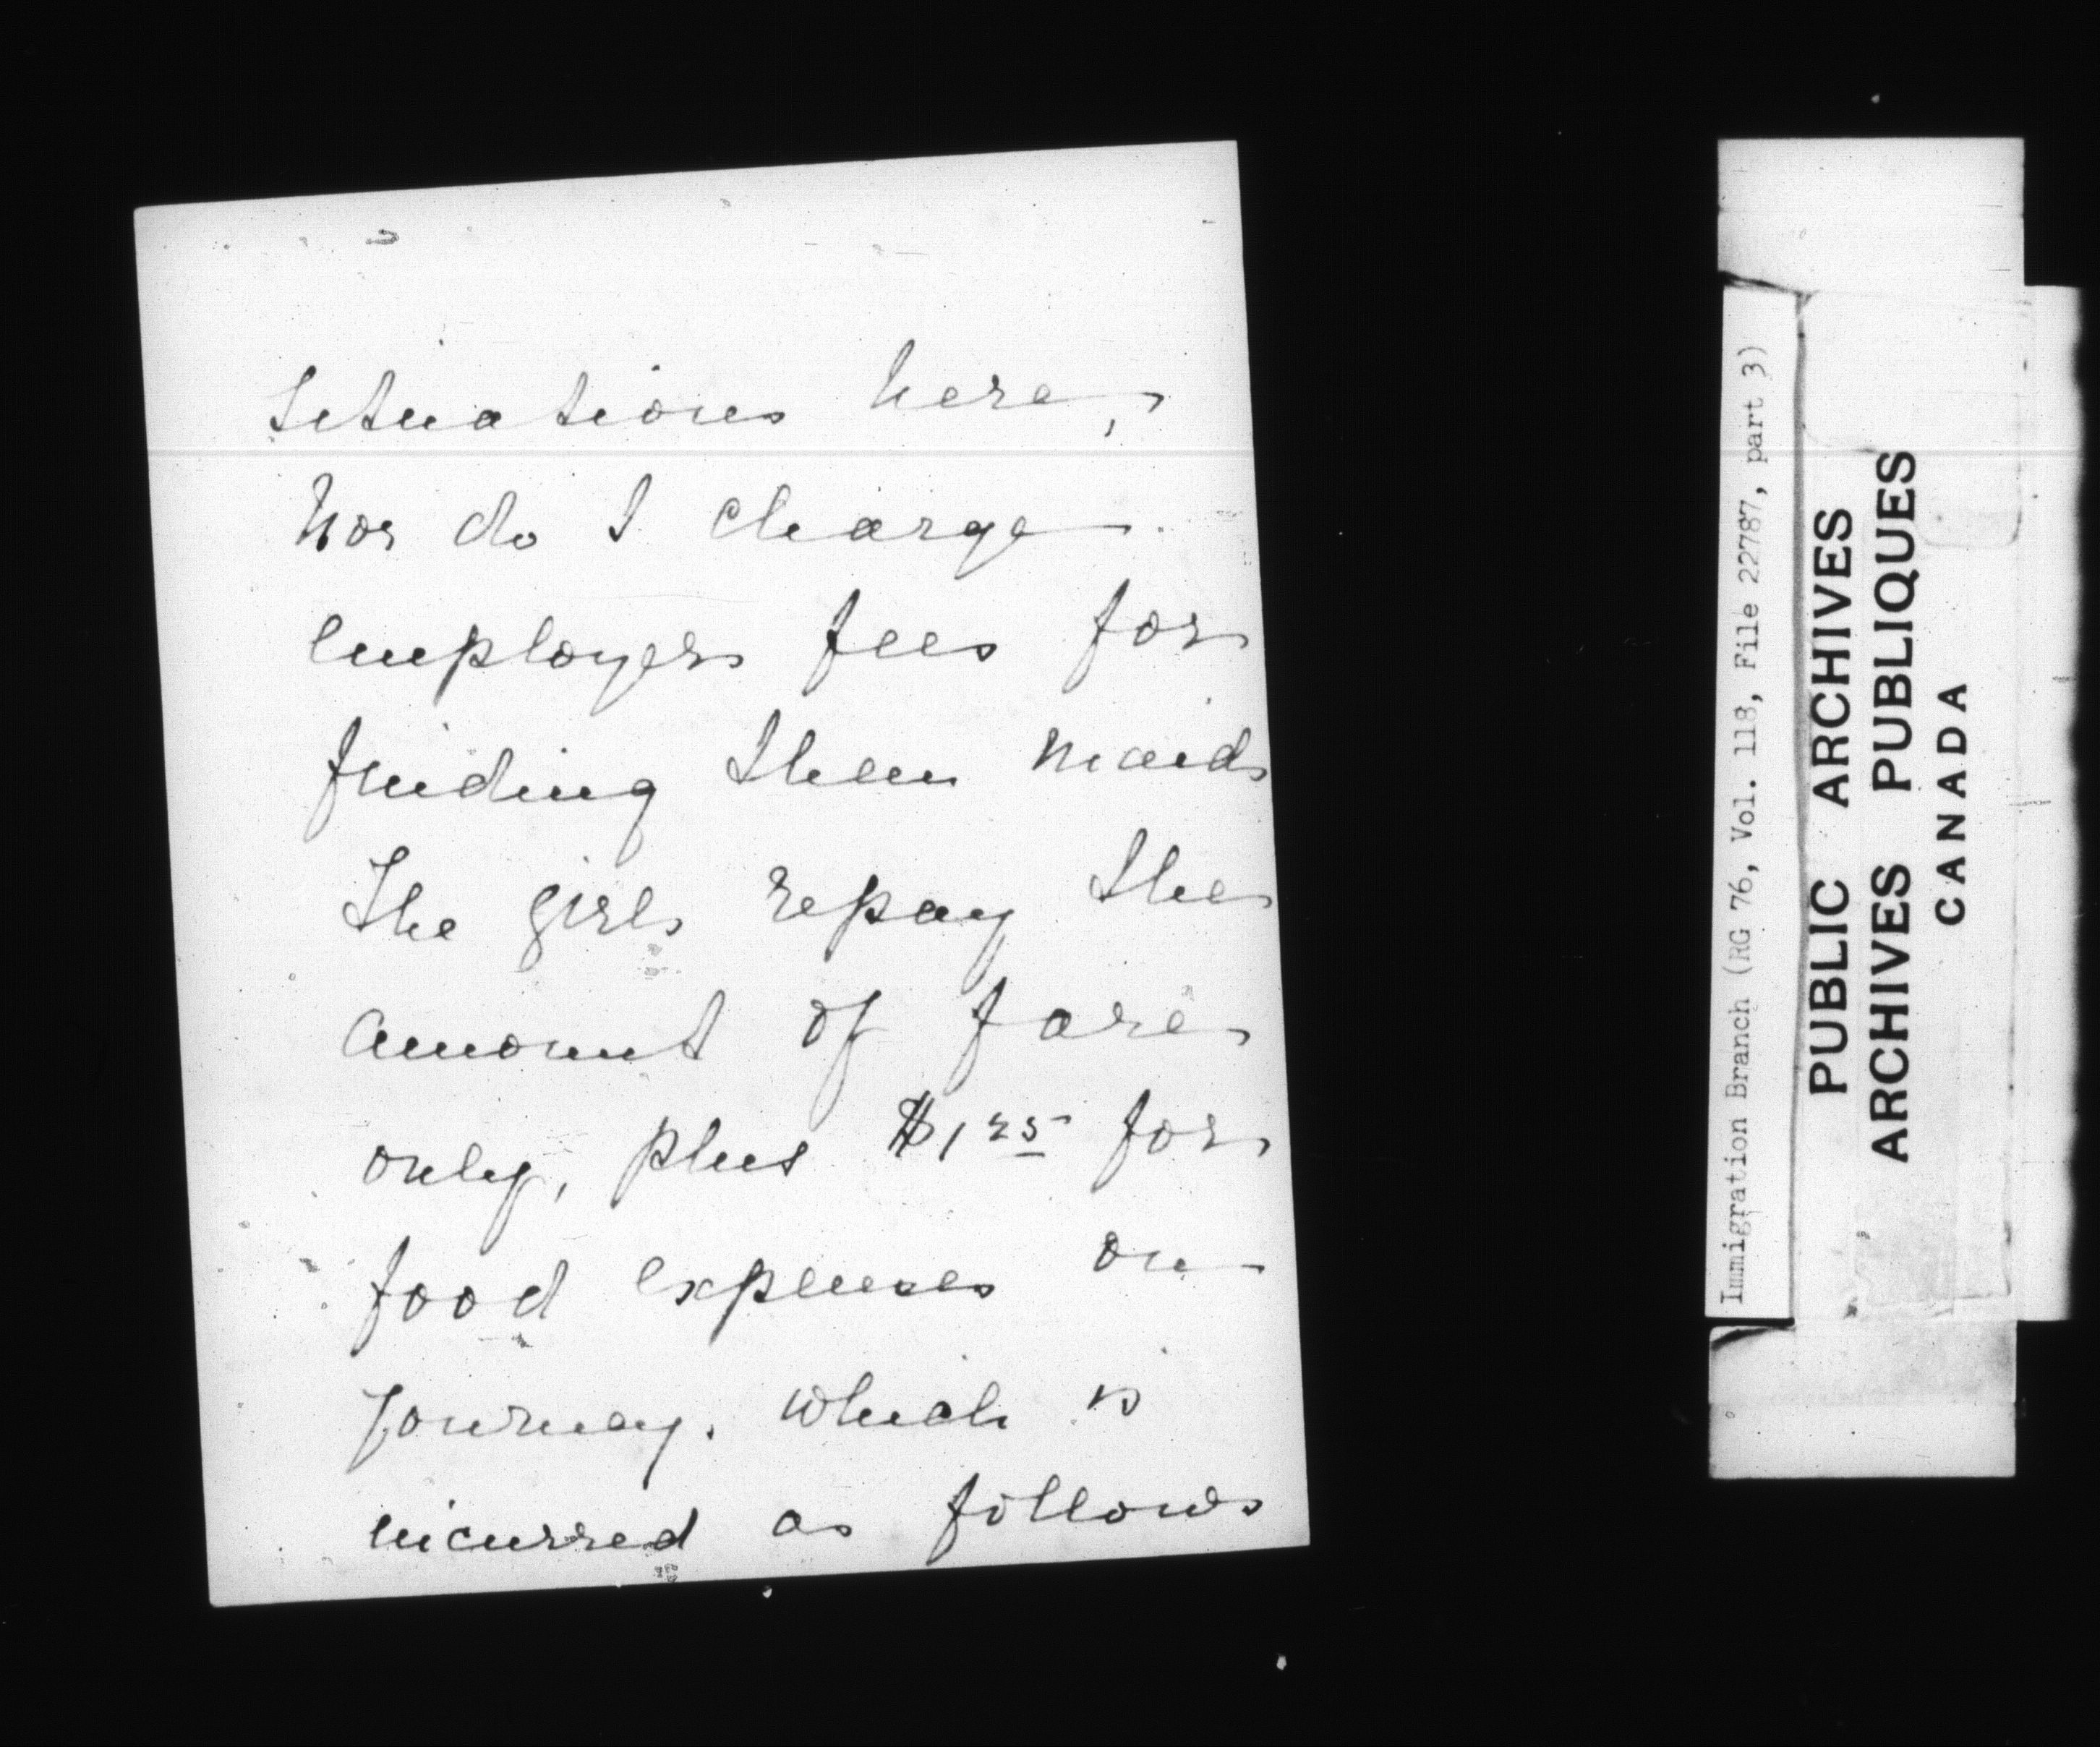 situations here,
nor do I charge
employers fees for
finding them maids
The girls repay the
amount of fare
only, plus $1 25 for
food expenses on
journey. which is
incurred as follows
Immigration Branch (RG 76, Vol. 118, File 22787, part 3)
PUBLIC ARCHIVES
ARCHIVES PUBLIQUES
CANADA